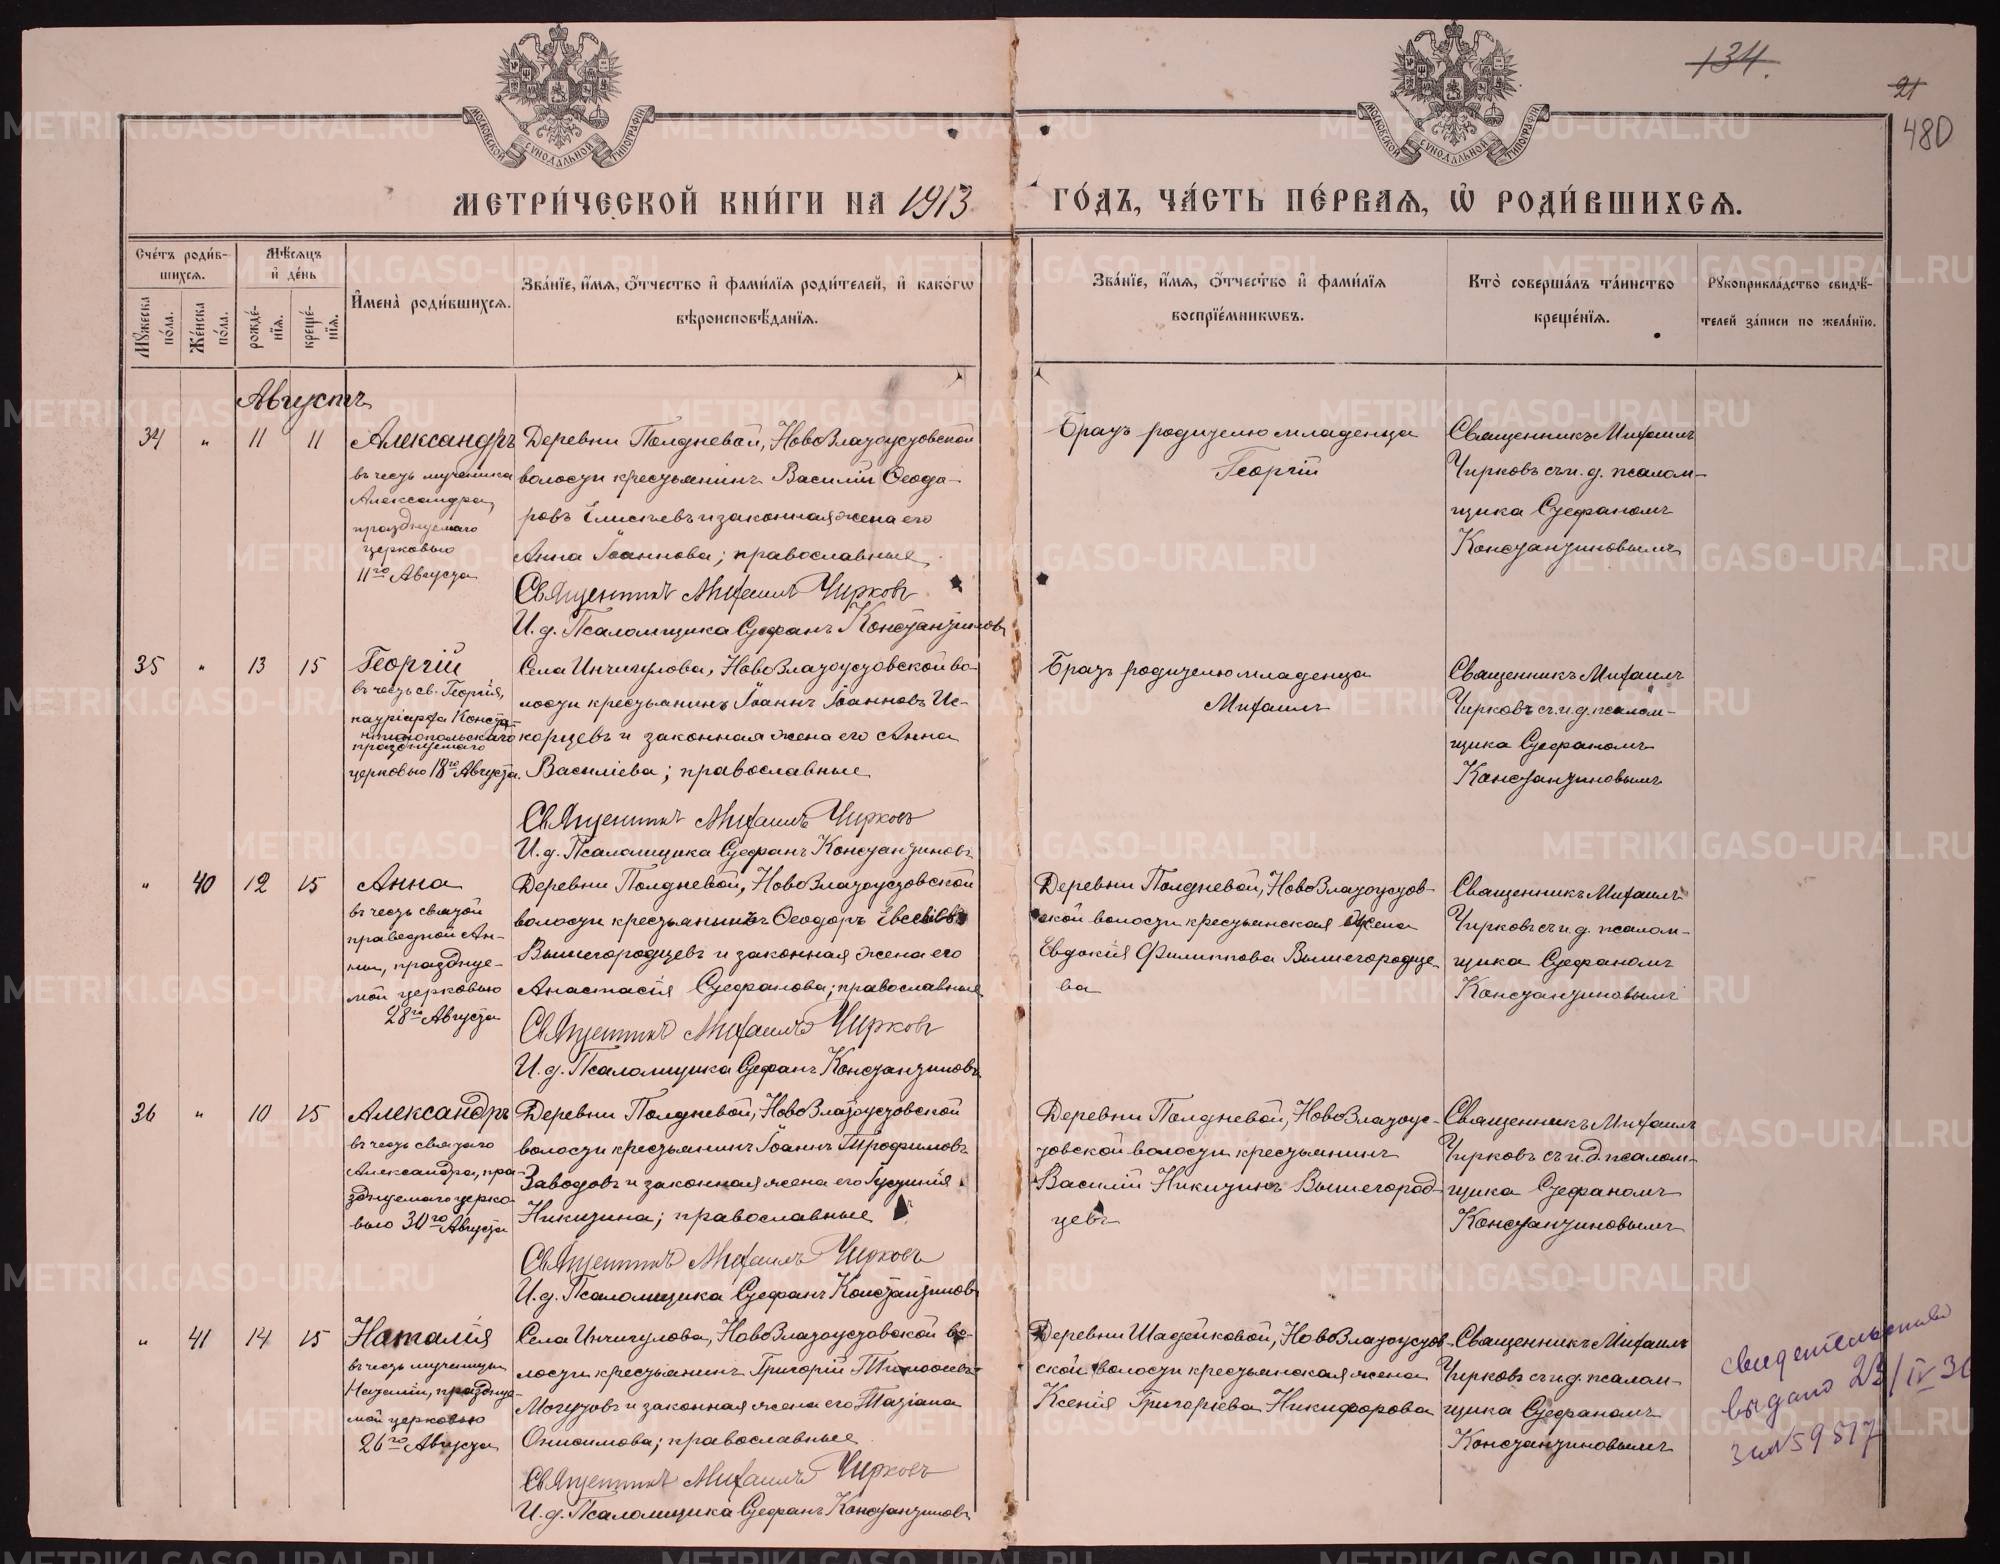 134.
21
480
МОСКОВСКОЙ СУНОДАЛЬНОЙ ТИПОГРАФІИ
МОСКОВСКОЙ СУНОДАЛЬНОЙ ТИПОГРАФІИ
МЕТРИ́ЧЕСКОЙ КНИ́ГИ НА 1913 ГО́ДЪ, ЧА́СТЬ ПЕ́РВАѦ, Ѡ҆ РОДИ́ВШИХСѦ.
Сче́тъ роди́в-
шихсѧ.
Мꙋжеска по́ла.
Же́нска по́ла.
Мѣ́сѧцъ
и҆ де́нь
рожде́-
нїѧ.
креще́-
нїѧ.
И҆мена̀ роди́вшихсѧ.
Зва́нїе, и҆́мѧ, ѻ҆́тчество и҆ фами́лїѧ роди́телей, и҆ како́гѡ
вѣроисповѣ́данїѧ.
Зва́нїе, и҆́мѧ, ѻ҆́тчество и҆ фами́лїѧ
воспрїе́мникѡвъ.
Кто̀ соверша́лъ та́инство
креще́нїѧ.
Рꙋкоприкла́дство свидѣ́-
телей за́писи по жела́нїю.
Августъ
34 " 11 11
Александръ
въ честь мученика
Александра,
празднуемаго
церковью
11го Августа
Деревни Полдневой, Ново Златоустовской
волости крестьянинъ Василій Ѳеодо-
ровъ Елисѣевъ и законная жена его
Анна Іоаннова; православные
Священникъ Михаилъ Чирковъ
И. д. Псаломщика Стефанъ Константиновъ
Братъ родителю младенца
Георгій
Священникъ Михаилъ
Чирковъ съ и. д. псалом-
щика Стефаномъ
Константиновымъ
35 " 13 15
Георгій
въ честь св. Георгія,
патріарха Конста-
нтинопольскаго
празднуемаго
церковью 18го Августа.
Села Ичигулова, Ново Златоустовской во-
лости крестьянинъ Іоаннъ Іоанновъ Ис-
корцевъ и законная жена его Анна
Василіева; православные
Священникъ Михаилъ Чирковъ
И. д. Псаломщика Стефанъ Константиновъ
Братъ родителю младенца
Михаилъ
Священникъ Михаилъ
Чирковъ съ и. д. псалом-
щика Стефаномъ
Константиновымъ
" 40 12 15
Анна
въ честь святой
праведной Ан-
ны, празднуе-
мой церковью
28го Августа
Деревни Полдневой, Ново Златоустовской
волости крестьянинъ Ѳеодоръ Евсеевъ
Вышегородцевъ и законная жена его
Анастасія Стефанова; православные
Священникъ Михаилъ Чирковъ
И. д. Псаломщика Стефанъ Константиновъ
Деревни Полдневой, Ново Златоустов-
ской волости крестьянская жена
Евдокія Филиппова Вышегородце-
ва
Священникъ Михаилъ
Чирковъ съ и. д. псалом-
щика Стефаномъ
Константиновымъ
36 " 10 15
Александръ
въ честь святаго
Александра, пра-
зднуемаго церко-
вью 30го Августа
Деревни Полдневой, Ново Златоустовской
волости крестьянинъ Іоаннъ Трофимовъ
Заводовъ и законная жена его Іустинія
Никитина; православные
Священникъ Михаилъ Чирковъ
И. д. Псаломщика Стефанъ Константиновъ
Деревни Полдневой, Ново Златоус-
товской волости крестьянинъ
Василій Никитинъ Вышегород-
цевъ
Священникъ Михаилъ
Чирковъ съ и. д. псалом-
щика Стефаномъ
Константиновымъ
" 41 14 15
Наталія
въ честь мученицы
Наталіи, праздуе-
мой церковью
26го Августа
Села Ичигулова, Ново Златоустовской во-
лости крестьянинъ Григорій Тимоѳеевъ
Могутовъ и законная жена его Татіана
Онисимова; православные
Священникъ Михаилъ Чирковъ
И. д. Псаломщика Стефанъ Константиновъ
Деревни Шадейковой, Ново Златоустов-
ской волости крестьянская жена
Ксенія Григоріева Никифорова
Священникъ Михаилъ
Чирковъ съ и. д. псалом-
щика Стефаномъ
Константиновымъ
свидетельство
выдано 23/IV 36
за № 59517
METRIKI.GASO-URAL.RU